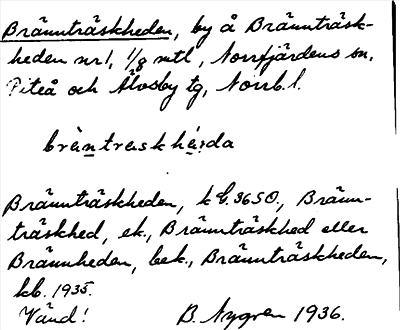 Brännträskheden, by å Brännträsk-
heden nr 1, 1/8 mtl, Norrfjärdens sn,
Piteå och Älvsby tg, Norrb. l.
brä̀ntraskhé̩da
Brännträskheden, k 6.3650., Bränn-
träskhed, ek., Brännträskhed eller
Brännheden, bek., Brännträskheden,
kb. 1935.
Vänd! B. Nygren 1936.